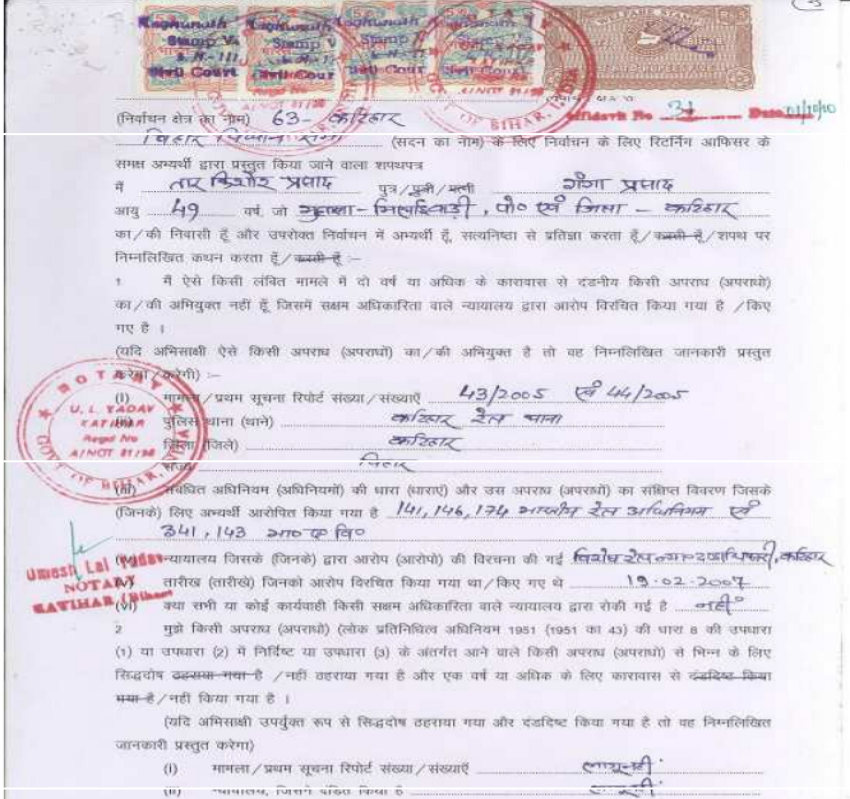 Raghunath
Stamp V
Civil Court
Stamp V
Civil Cour
Stamp V
Civil Cour
WELFARE STAMP
Affidavit No 31 Date 01/10/10
(निर्वाचन क्षेत्र का नाम) 63- कटिहार
बिहार विधान सभा (सदन का नाम) के लिए निर्वाचन के लिए रिटर्निंग आफिसर के
समक्ष अभ्यर्थी द्वारा प्रस्तुत किया जाने वाला शपथपत्र
मैं तार किशोर प्रसाद पुत्र/पुत्री/पत्नी गंगा प्रसाद
आयु 49 वर्ष, जो मुहल्ला- मिरचाईबाड़ी, पो० एवं जिला - कटिहार
का/की निवासी हूँ और उपरोक्त निर्वाचन में अभ्यर्थी हूँ, सत्यनिष्ठा से प्रतिज्ञा करता हूँ/करती हूँ/शपथ पर
निम्नलिखित कथन करता हूँ/करती हूँ :-
1 मैं ऐसे किसी लंबित मामले में दो वर्ष या अधिक के कारावास से दंडनीय किसी अपराध (अपराधों)
का/की अभियुक्त नहीं हूँ जिसमें सक्षम अधिकारिता वाले न्यायालय द्वारा आरोप विरचित किया गया है /किए
गए है ।
(यदि अभिसाक्षी ऐसे किसी अपराध (अपराधों) का/की अभियुक्त है तो वह निम्नलिखित जानकारी प्रस्तुत
करेगा/करेगी) :-
(i) मामला/प्रथम सूचना रिपोर्ट संख्या/संख्याएँ 43/2005 एवं 44/2005
पुलिस थाना (थाने) कटिहार रेल थाना
जिला (जिले) कटिहार
राज्य बिहार
NOTARY
U. L. YADAV
KATIHAR
Regd No
A/NOT 81/98
GOVT OF BIHAR, INDIA
संबंधित अधिनियम (अधिनियमों) की धारा (धाराएं) और उस अपराध (अपराधों) का संक्षिप्त विवरण जिसके
(जिनके) लिए अभ्यर्थी आरोपित किया गया है 141, 146, 174 भारतीय रेल अधिनियम एवं
341, 143 भा० द० वि०
न्यायालय जिसके (जिनके) द्वारा आरोप (आरोपो) की विरचना की गई विशेष रेल न्या० दण्डाधिकारी, कटिहार
Umesh Lal Yadav
NOTARY
KATIHAR (Bihar)
(V) तारीख (तारीखे) जिनको आरोप विरचित किया गया था/किए गए थे 19.02.2007
(vi) क्या सभी या कोई कार्यवाही किसी सक्षम अधिकारिता वाले न्यायालय द्वारा रोकी गई है नहीं
2 मुझे किसी अपराध (अपराधों) (लोक प्रतिनिधित्व अधिनियम 1951 (1951 का 43) की धारा 8 की उपधारा
(1) या उपधारा (2) में निर्दिष्ट या उपधारा (3) के अंतर्गत आने वाले किसी अपराध (अपराधों) से भिन्न के लिए
सिद्धदोष ठहराया गया है /नहीं ठहराया गया है और एक वर्ष या अधिक के लिए कारावास से दंडदिष्ट किया
गया है/नहीं किया गया है ।
(यदि अभिसाक्षी उपर्युक्त रूप से सिद्धदोष ठहराया गया और दंडदिष्ट किया गया है तो वह निम्नलिखित
जानकारी प्रस्तुत करेगा)
(i) मामला/प्रथम सूचना रिपोर्ट संख्या/संख्याएँ लागू नहीं
(ii) न्यायालय, जिसने दंडित किया है